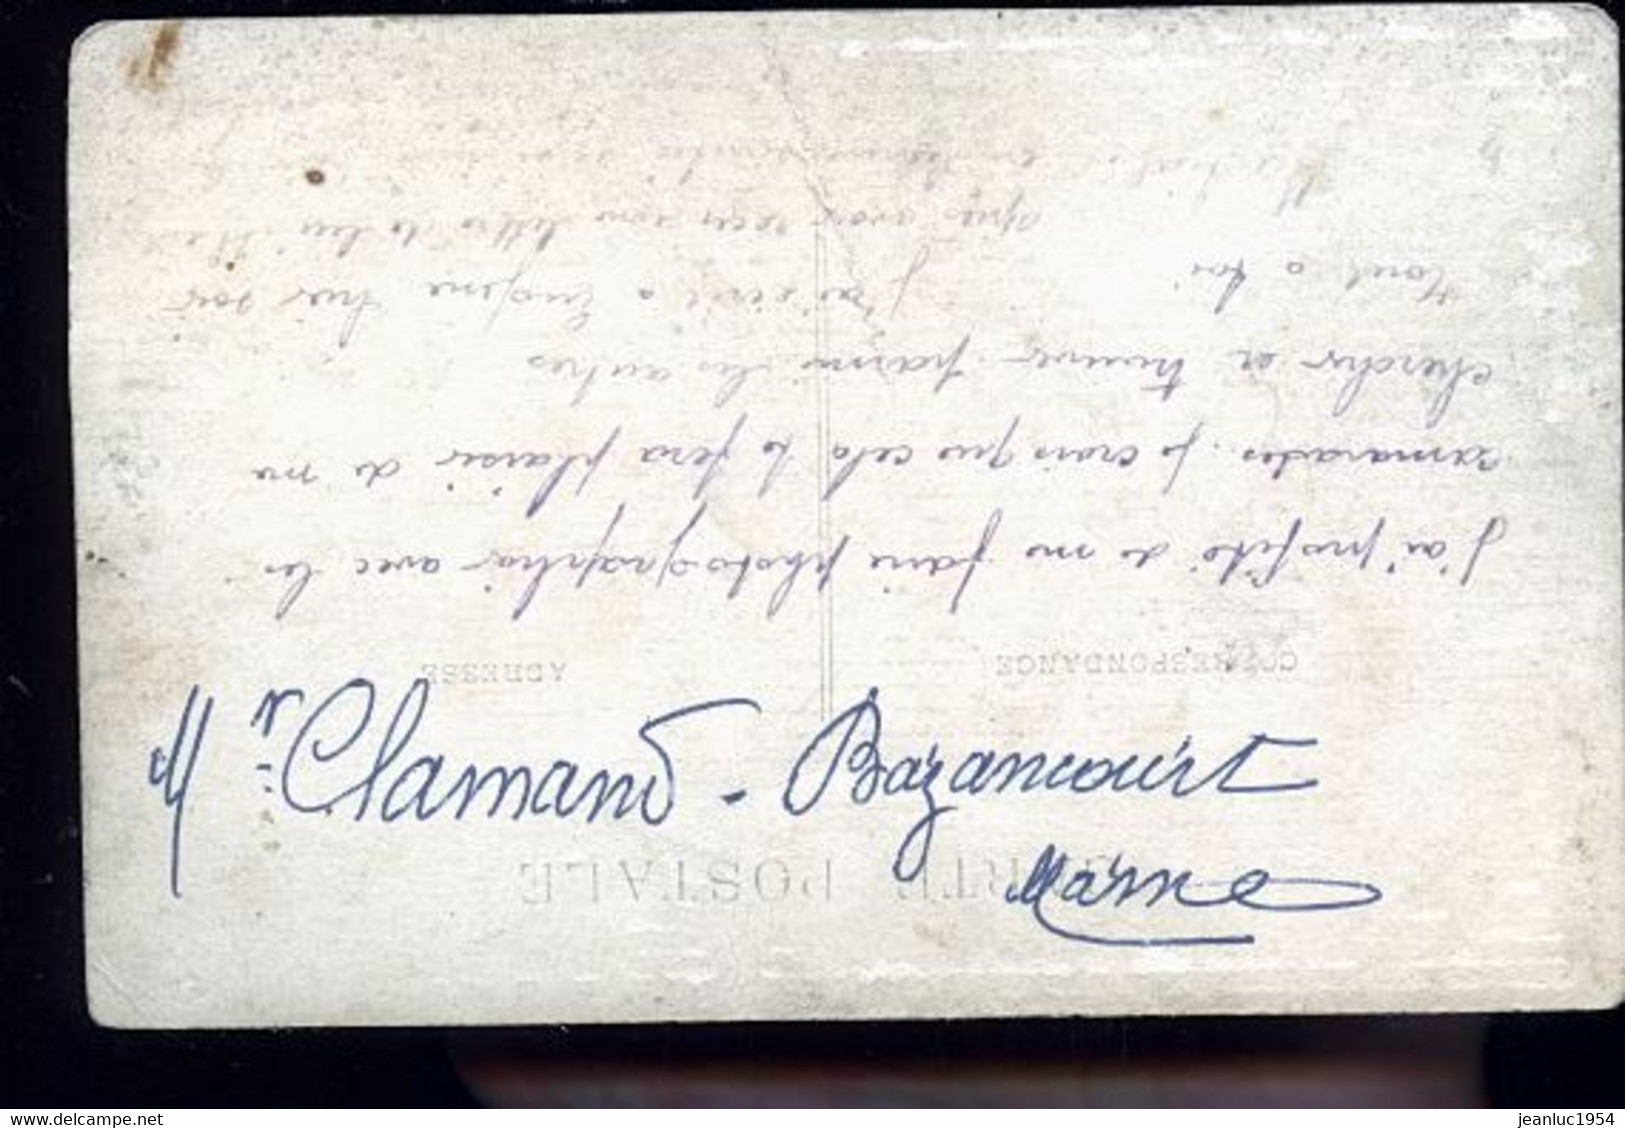 Mr. Clamand - Bazancourt
Marne
CARTE POSTALE
CORRESPONDANCE
ADRESSE
J'ai profité de me faire photographier avec les
camarades. je crois que cela te fera plaisir de me
chercher et trouver parmi les autres
Tout a toi
J'ai écrit a Eugène hier soir
après avoir reçu une lettre de lui
www.delcampe.net
jeanluc1954